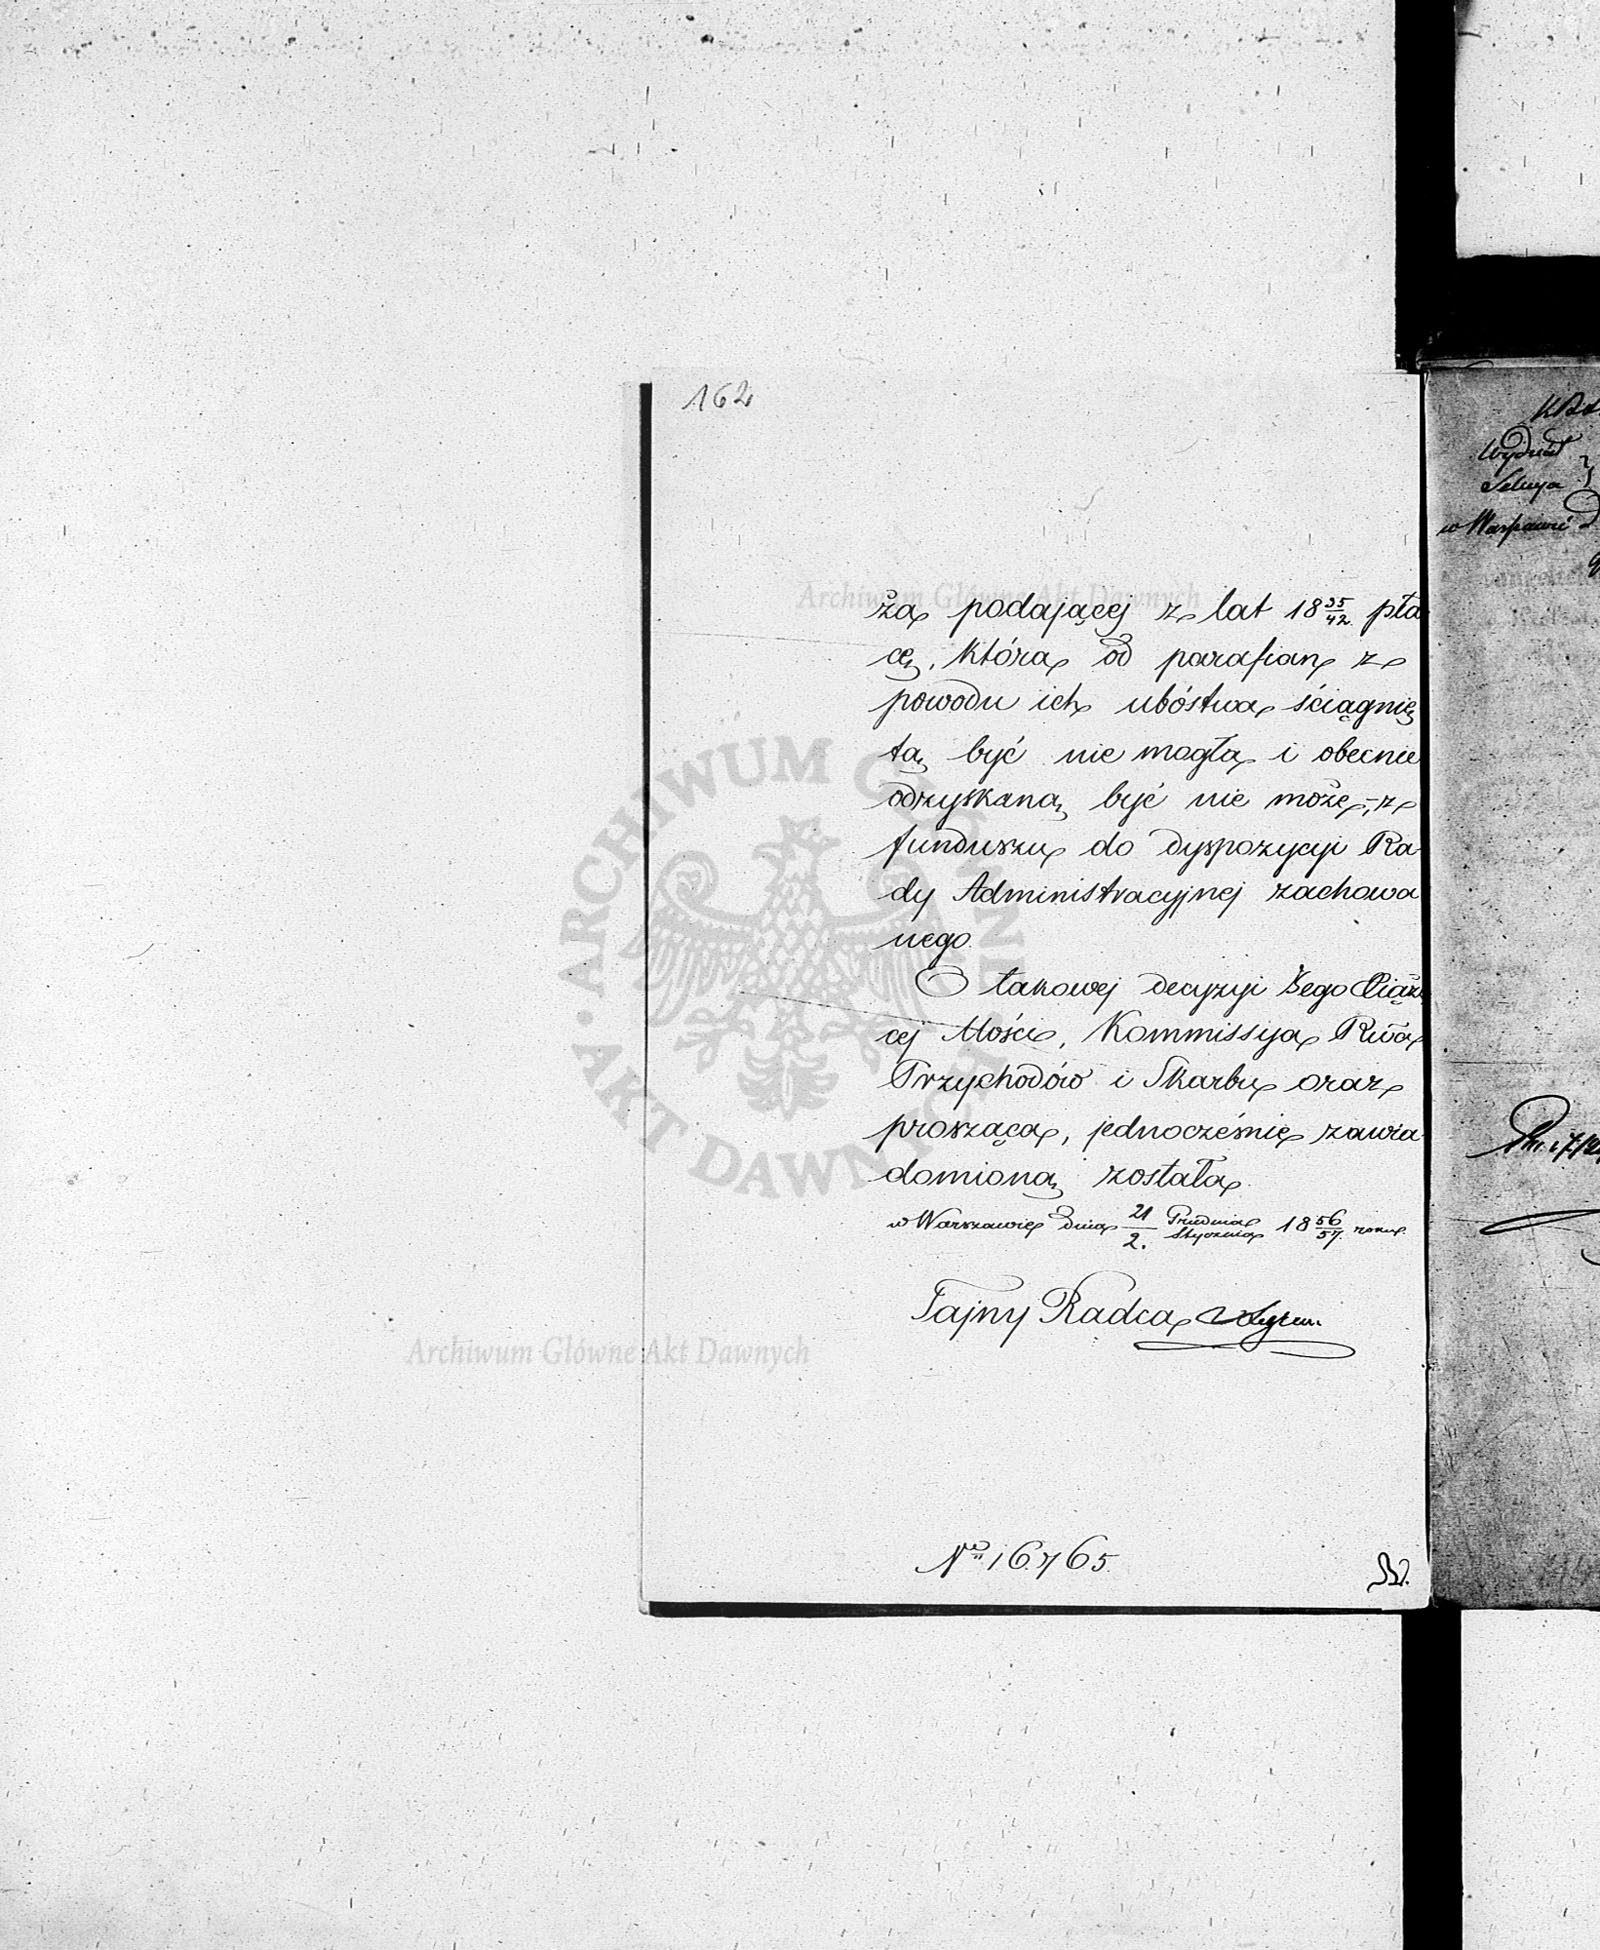 162
Archiwum Główne Akt Dawnych
żą podającej z lat 18 35/42 pła
cę, która od parafian z
powodu ich ubóstwa ściągnię
tą być nie mogła i obecnie
odzyskaną być nie może, z
funduszu do dyspozycyi Ra
dy Administracyjnej zachowa
nego
O takowej decyzyi Jego Xiążę
cej Mości, Kommissyja Rwa
Przychodów i Skarbu oraz
prosząca, jednocześnie zawia
domioną została
w Warszawie dnia 21/2. Grudnia/Stycznia 18 56/57. roku
Tajny Radca
Archiwum Główne Akt Dawnych
ARCHIWUM GŁÓWNE AKT DAWNYCH
No 16765
Wydział
Sekcya
w Warszawie